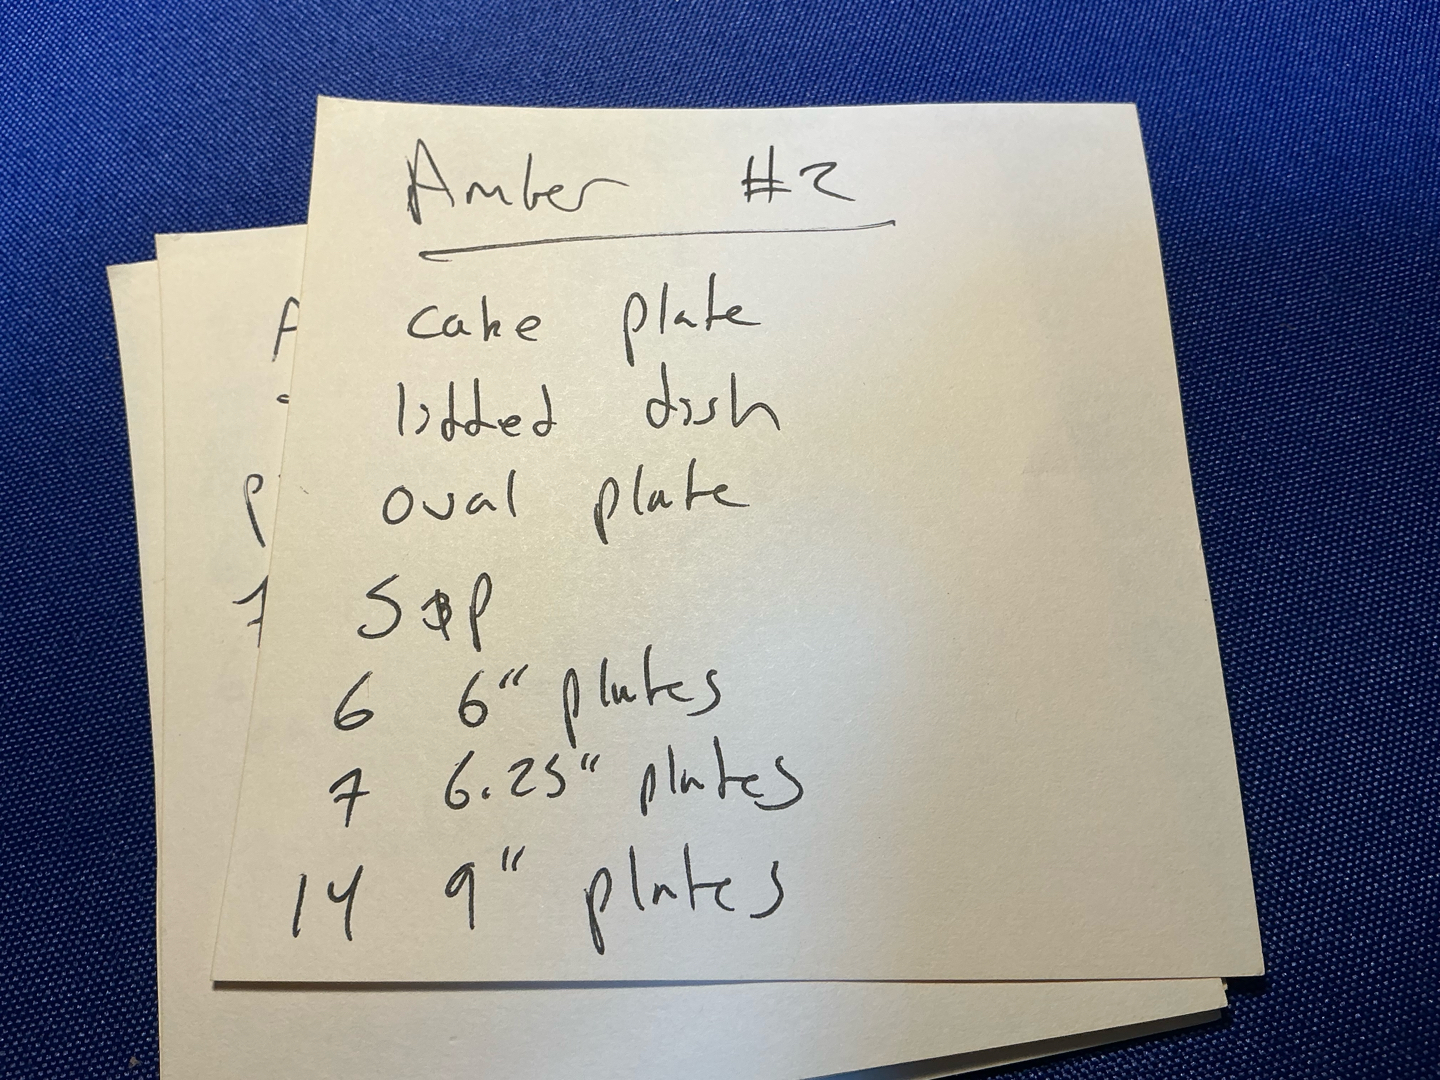 Amber #2
cake plate
lidded dish
oval plate
S&P
6 6" plates
7 6.25" plates
14 9" plates